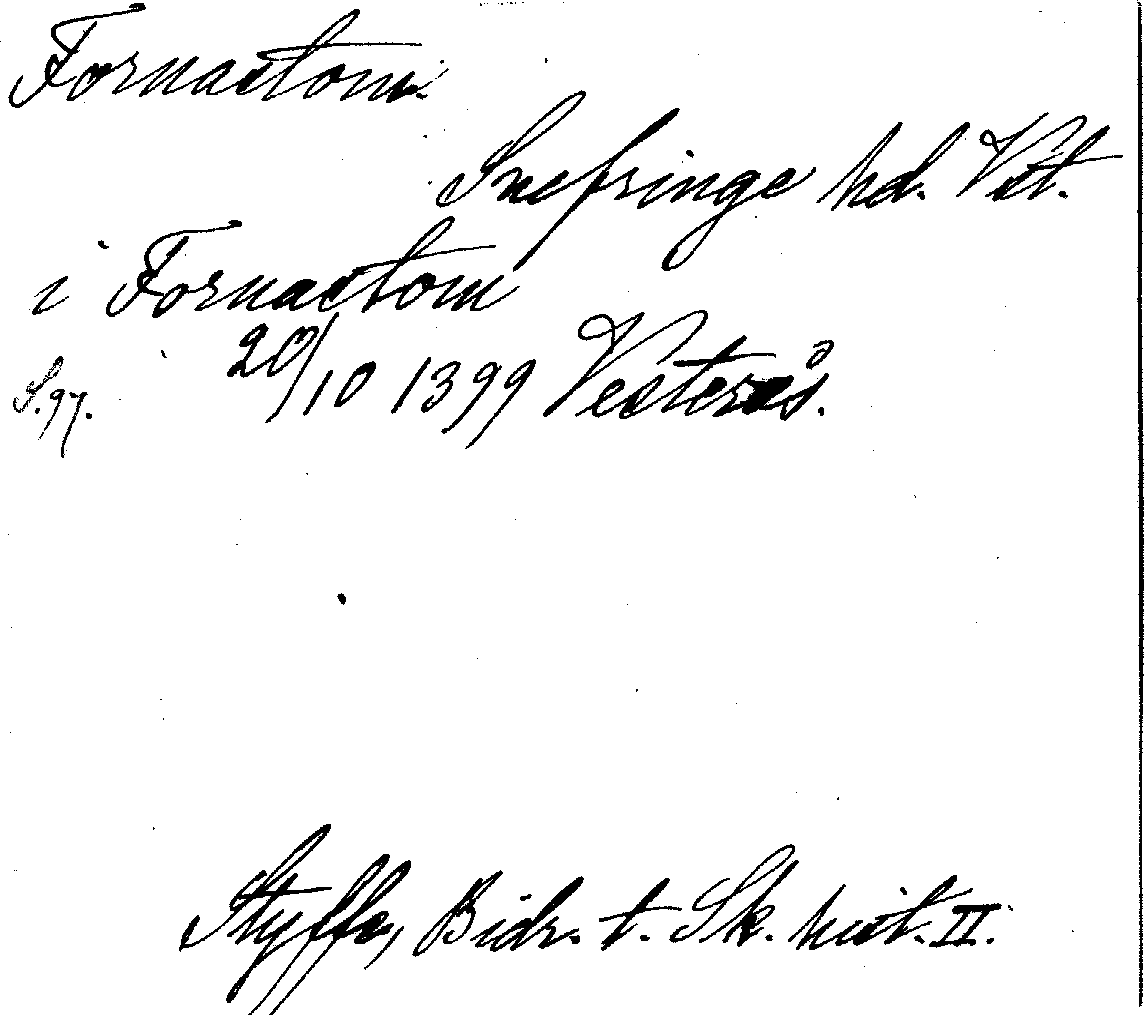 Fornastom.
Snefringe hd. Vst.
i Fornastom
S. 97. 20/10 1399 Vesterås.
Styffe, Bidr. t. Sk. hist. II.